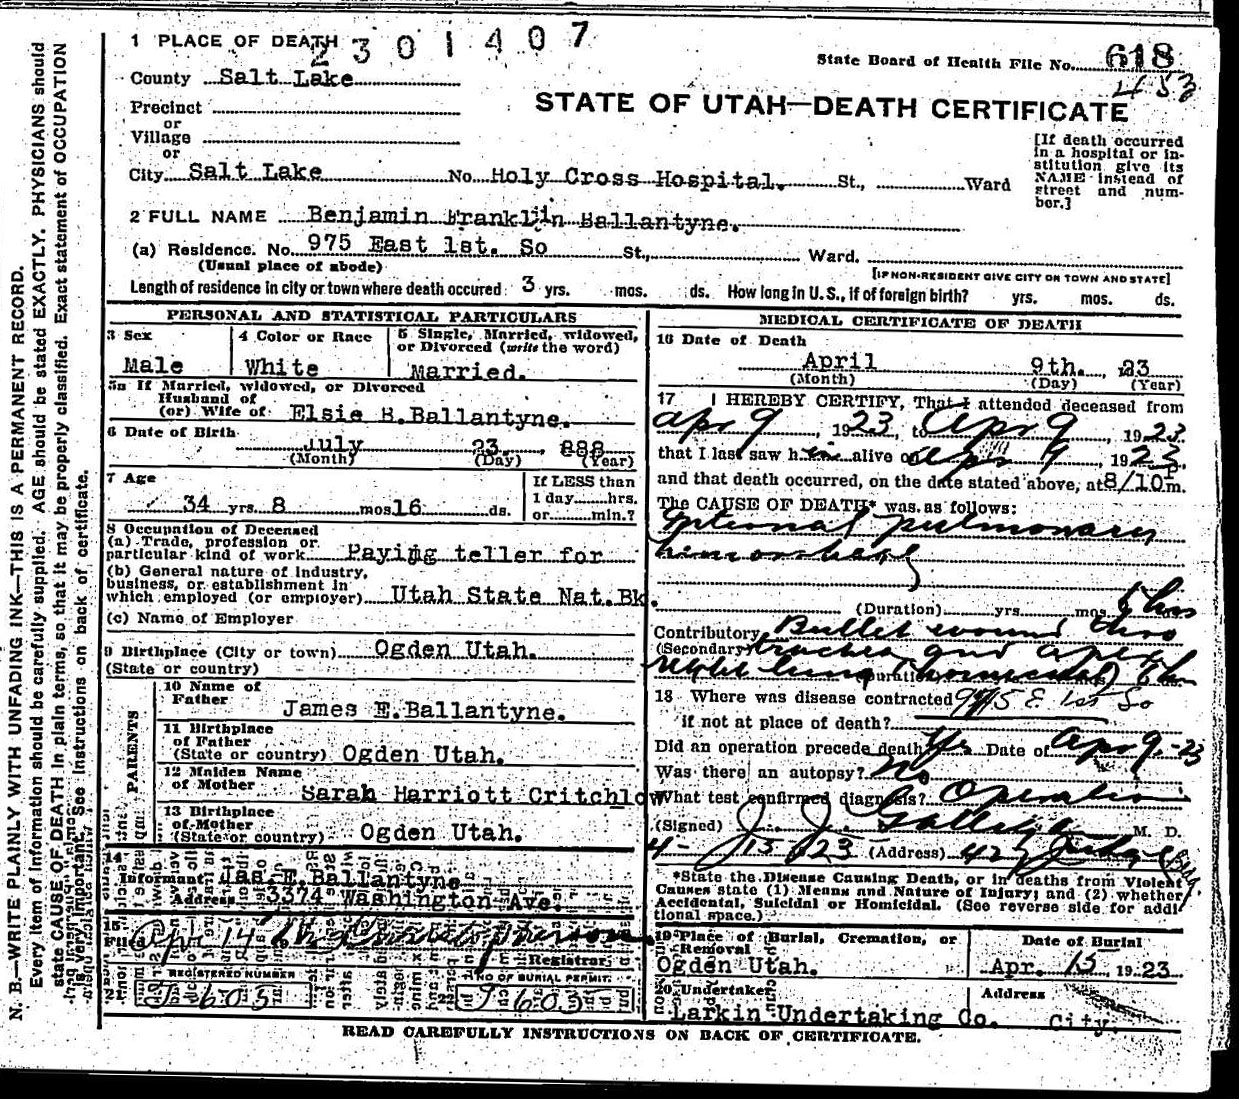 1 PLACE OF DEATH
2301407
State Board of Health File No. 618
453
County Salt Lake
STATE OF UTAH—DEATH CERTIFICATE
Precinct
or
Village
or
City Salt Lake No. Holy Cross Hospital. St., Ward
[If death occurred in a hospital or institution give its NAME instead of street and number.]
2 FULL NAME Benjamin Franklin Ballantyne.
(a) Residence. No. 975 East 1st. So St., Ward.
(Usual place of abode)
[IF NON-RESIDENT GIVE CITY OR TOWN AND STATE]
Length of residence in city or town where death occured 3 yrs. mos. ds. How long in U. S., if of foreign birth? yrs. mos. ds.
PERSONAL AND STATISTICAL PARTICULARS
3 Sex
Male
4 Color or Race
White
5 Single, Married, widowed, or Divorced (write the word)
Married.
5a If Married, widowed, or Divorced
Husband of
(or) Wife of Elsie B.Ballantyne.
6 Date of Birth
July 23. 888
(Month) (Day) (Year)
7 Age
34 yrs. 8 mos 16 ds.
If LESS than
1 day hrs.
or min.?
8 Occupation of Deceased
(a) Trade, profession or
particular kind of work Paying teller for
(b) General nature of Industry,
business, or establishment in
which employed (or employer) Utah State Nat.Bk.
(c) Name of Employer
9 Birthplace (City or town) Ogden Utah.
(State or country)
PARENTS
10 Name of
Father James E.Ballantyne.
11 Birthplace
of Father
(State or country) Ogden Utah.
12 Maiden Name
of Mother Sarah Harriott Critchlow
13 Birthplace
of Mother
(State or country) Ogden Utah.
14
Informant Jas E.Ballantyne
Address 3374 Washington Ave.
15
Filed Apr 14
Registrar
REGISTERED NUMBER
J 603
NO OF BURIAL PERMIT.
J 603
MEDICAL CERTIFICATE OF DEATH
16 Date of Death
April 9th. , 23
(Month) (Day) (Year)
17 I HEREBY CERTIFY, That I attended deceased from
Apr 9, 1923, to Apr 9, 1923
that I last saw him alive on Apr 9, 1923,
and that death occurred, on the date stated above, at 8/10 P m.
The CAUSE OF DEATH* was as follows:
pulmonary
hemorrhage
(Duration) yrs. mos. 5 hrs
Contributory Bullet wound thro
(Secondary) trachea and apex
right lung (homicidal)
18 Where was disease contracted 975 E 1st So
if not at place of death?
Did an operation precede death? Yes Date of Apr 9-23
Was there an autopsy? No
What test confirmed diagnosis? Operation
(Signed) J. J. M. D.
4-15 1923 (Address) 427 Judge Bldg
*State the Disease Causing Death, or in deaths from Violent
Causes state (1) Means and Nature of Injury; and (2) whether
Accidental, Suicidal or Homicidal. (See reverse side for addi
tional space.)
19 Place of Burial, Cremation, or
Removal
Ogden Utah.
Date of Burial
Apr. 15, 1923
20 Undertaker
Larkin Undertaking Co.
Address
City.
READ CAREFULLY INSTRUCTIONS ON BACK OF CERTIFICATE.
N. B.—WRITE PLAINLY WITH UNFADING INK—THIS IS A PERMANENT RECORD.
Every item of information should be carefully supplied. AGE should be stated EXACTLY. PHYSICIANS should
state CAUSE OF DEATH in plain terms, so that it may be properly classified. Exact statement of OCCUPATION
is very important. See instructions on back of certificate.